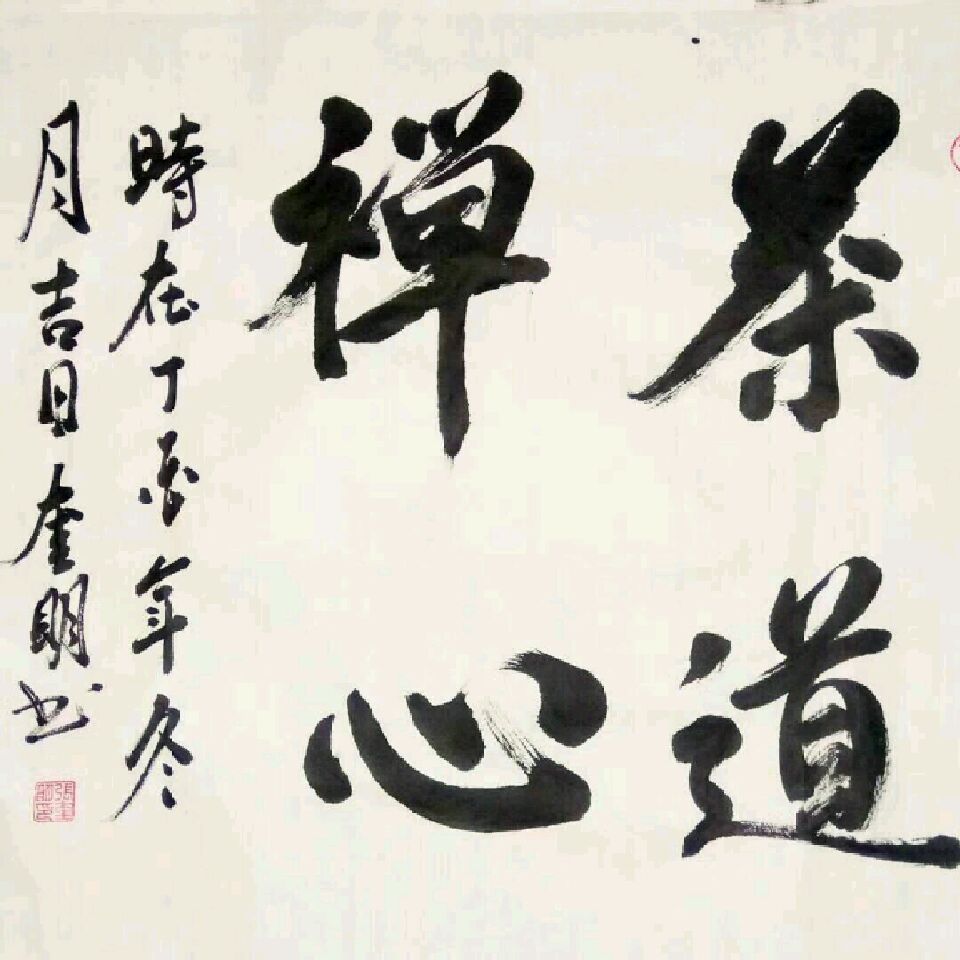 茶道
禅心
時在丁酉年冬
月吉日奎明书